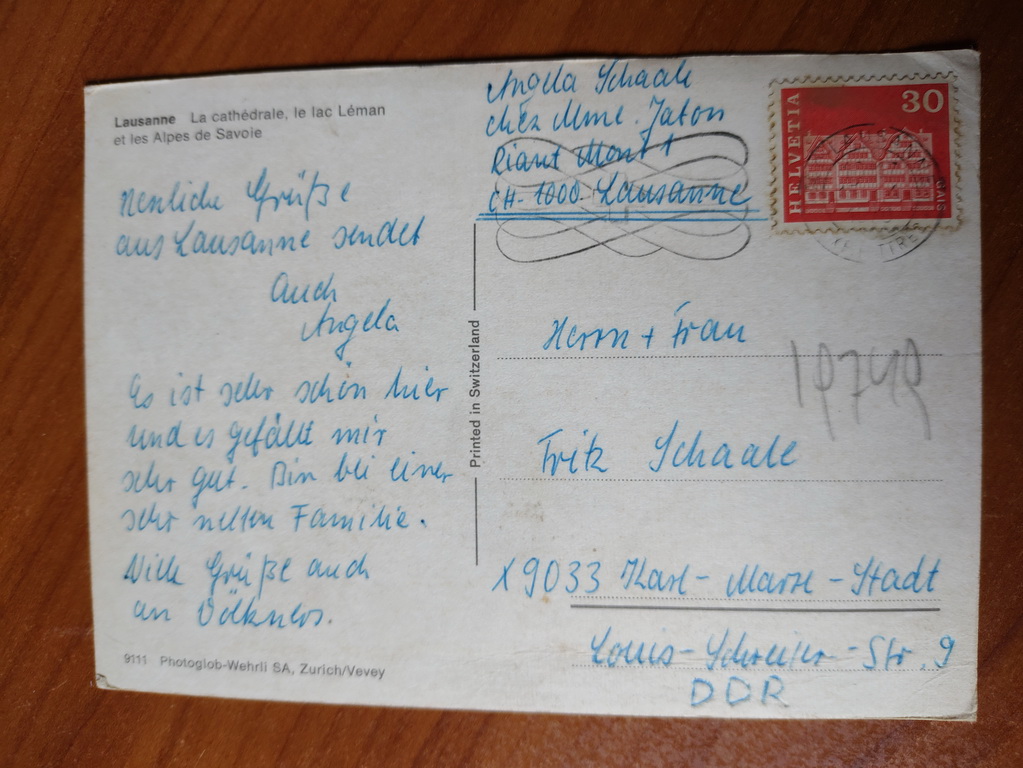 Lausanne La cathédrale, le lac Léman
et les Alpes de Savoie
Herzliche Grüße
aus Lausanne sendet
Euch
Angela
Es ist sehr schön hier
und es gefällt mir
sehr gut. Bin bei einer
sehr netten Familie.
Viele Grüße auch
an Völkners.
9111 Photoglob-Wehrli SA, Zurich/Vevey
Printed in Switzerland
Angela Schaale
chez Mme. Jaton
Riant Mont 1
CH-1000 Lausanne
HELVETIA
30
Herrn + Frau
Fritz Schaale
X9033 Karl-Marx-Stadt
Str. 9
DDR